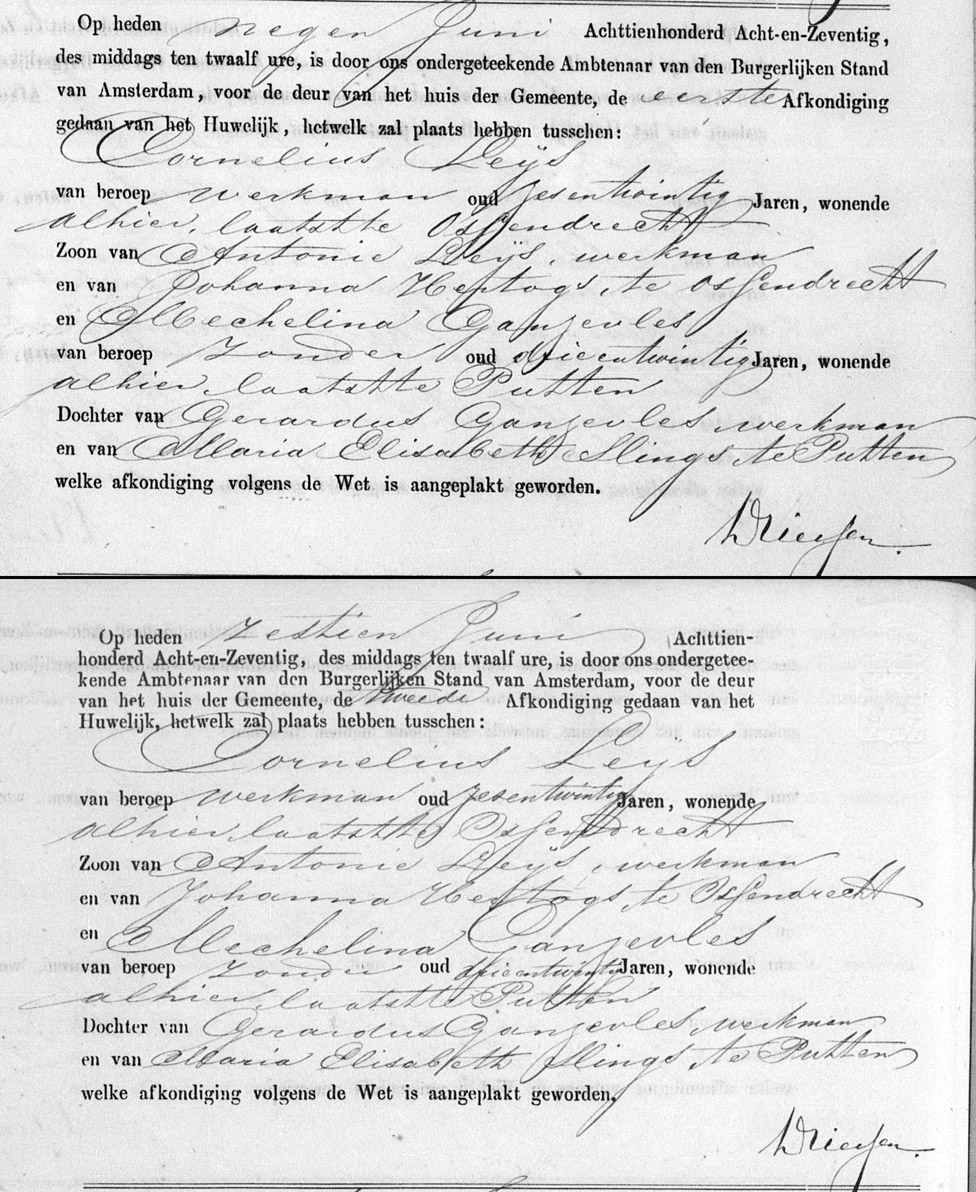 Op heden negen Juni Achttienhonderd Acht-en-Zeventig,
des middags ten twaalf ure, is door ons ondergeteekende Ambtenaar van den Burgerlijken Stand
van Amsterdam, voor de deur van het huis der Gemeente, de eerste Afkondiging
gedaan van het Huwelijk, hetwelk zal plaats hebben tusschen:
Cornelius Leijs
van beroep werkman oud zesentwintig Jaren, wonende
alhier, laatstte Ossendrecht
Zoon van Antonie Leijs, werkman
en van Johanna Hertogs, te Ossendrecht
en Mechelina Ganzevles
van beroep Zonder oud drieentwintig Jaren, wonende
alhier, laatstte Putten
Dochter van Gerardus Ganzevles, werkman
en van Maria Elisabeth Slings, te Putten
welke afkondiging volgens de Wet is aangeplakt geworden.
Op heden Zestien Juni Achttien-
honderd Acht-en-Zeventig, des middags ten twaalf ure, is door ons ondergetee-
kende Ambtenaar van den Burgerlijken Stand van Amsterdam, voor de deur
van het huis der Gemeente, de tweede Afkondiging gedaan van het
Huwelijk, hetwelk zal plaats hebben tusschen:
Cornelius Leijs
van beroep werkman oud zesentwintig Jaren, wonende
alhier, laatstte Ossendrecht
Zoon van Antonie Leijs, werkman
en van Johanna Hertogs, te Ossendrecht
en Mechelina Ganzevles
van beroep Zonder oud drieentwintig Jaren, wonende
alhier, laatstte Putten
Dochter van Gerardus Ganzevles, werkman
en van Maria Elisabeth Slings, te Putten
welke afkondiging volgens de Wet is aangeplakt geworden.